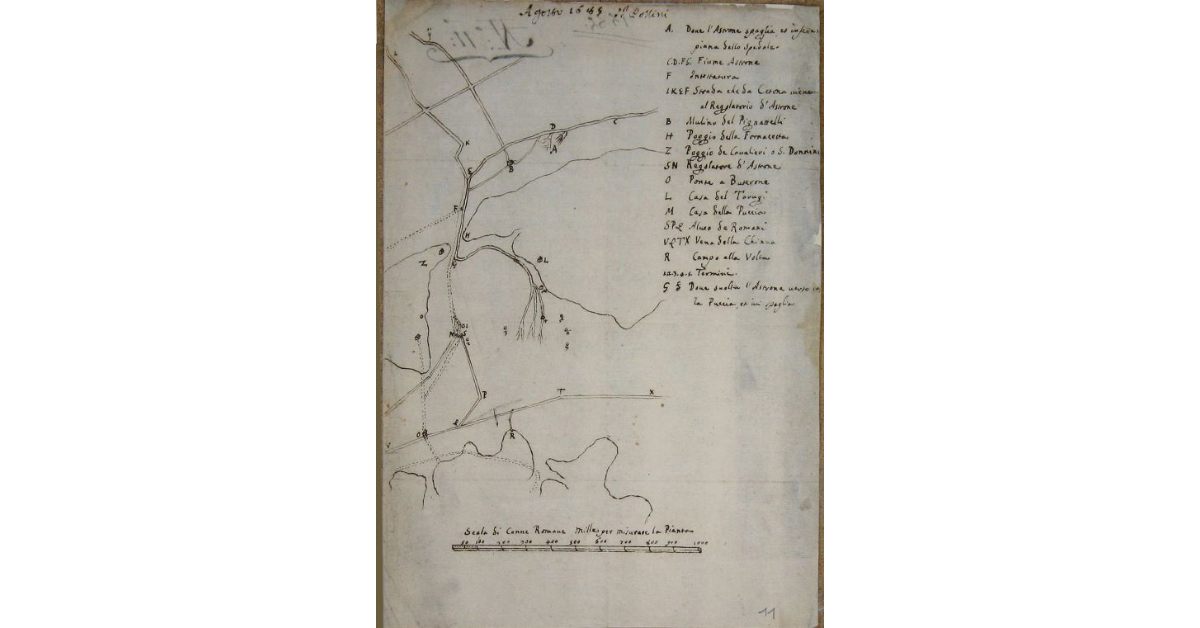 Agosto 16
A. Doue l'Astrone spaglia et
piana dello Spedale
C.D.F.G. Fiume Astrone
F
I K G F Strada che da Cetona uiene
al Regolatorio d'Astrone
B Mulino del Pignattelli
H Poggio della Fornacetta
Z Poggio de Caualieri o S. Donnino
SN Regolatore d'Astrone
O Ponte a Buterone
L Casa del Tarugi
M Casa della Puccia
SPQ Alueo de Romani
VQTX Vena della Chiana
R Campo alla Volta
Termini
Doue l'Astrone uerso
la Puccia, et iui spaglia
K
D
C
A
G
B
F
H
L
Z
N
M
S
P
T
X
Q
V
O
R
Scala di Canne Romane Mille per misurare la Pianta
50 100 200 300 400 500 600 700 800 900 1000
11